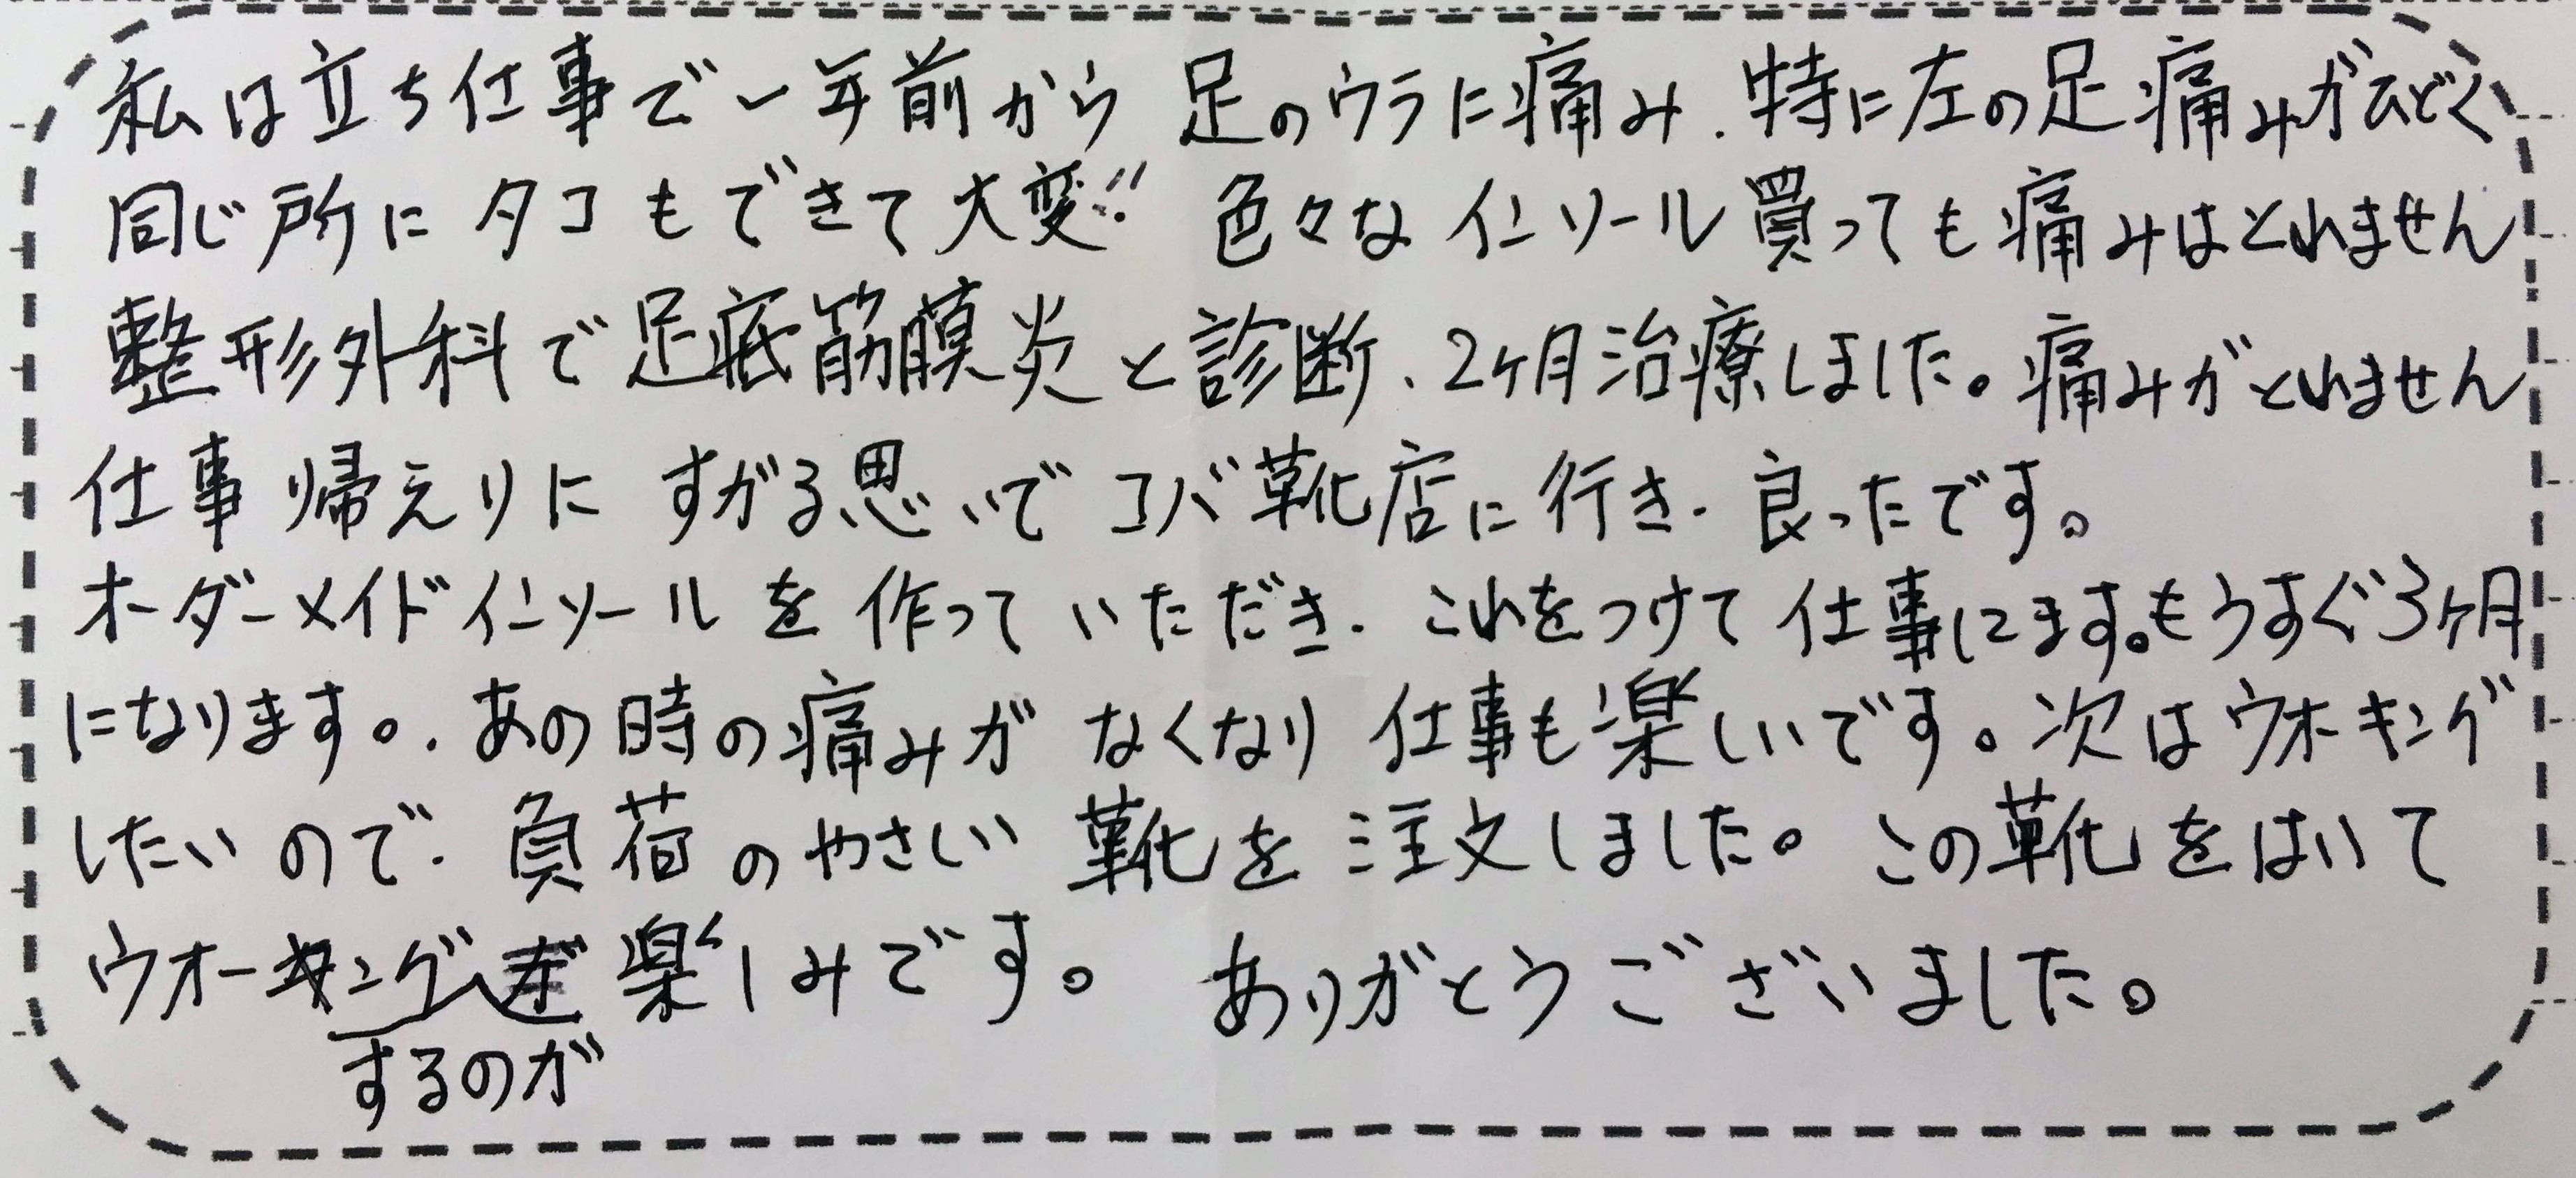 私は立ち仕事で一年前から 足のウラに痛み、特に左の足痛みがひどく
同じ所に タコもできて大変!! 色々なインソール買っても痛みはとれません
整形外科で足底筋膜炎と診断、2ヶ月治療しました。痛みがとれません
仕事帰えりに すがる思いで コバ靴店に行き、良ったです。
オーダーメイドインソールを作っていただき、これをつけて仕事してます。もうすぐ3ヶ月
になります。、あの時の痛みが なくなり 仕事も楽しいです。次はウオーキング
したいので、負荷のやさしい 靴を注文しました。この靴をはいて
ウオーキング楽しみです。 ありがとうございました。
するのが